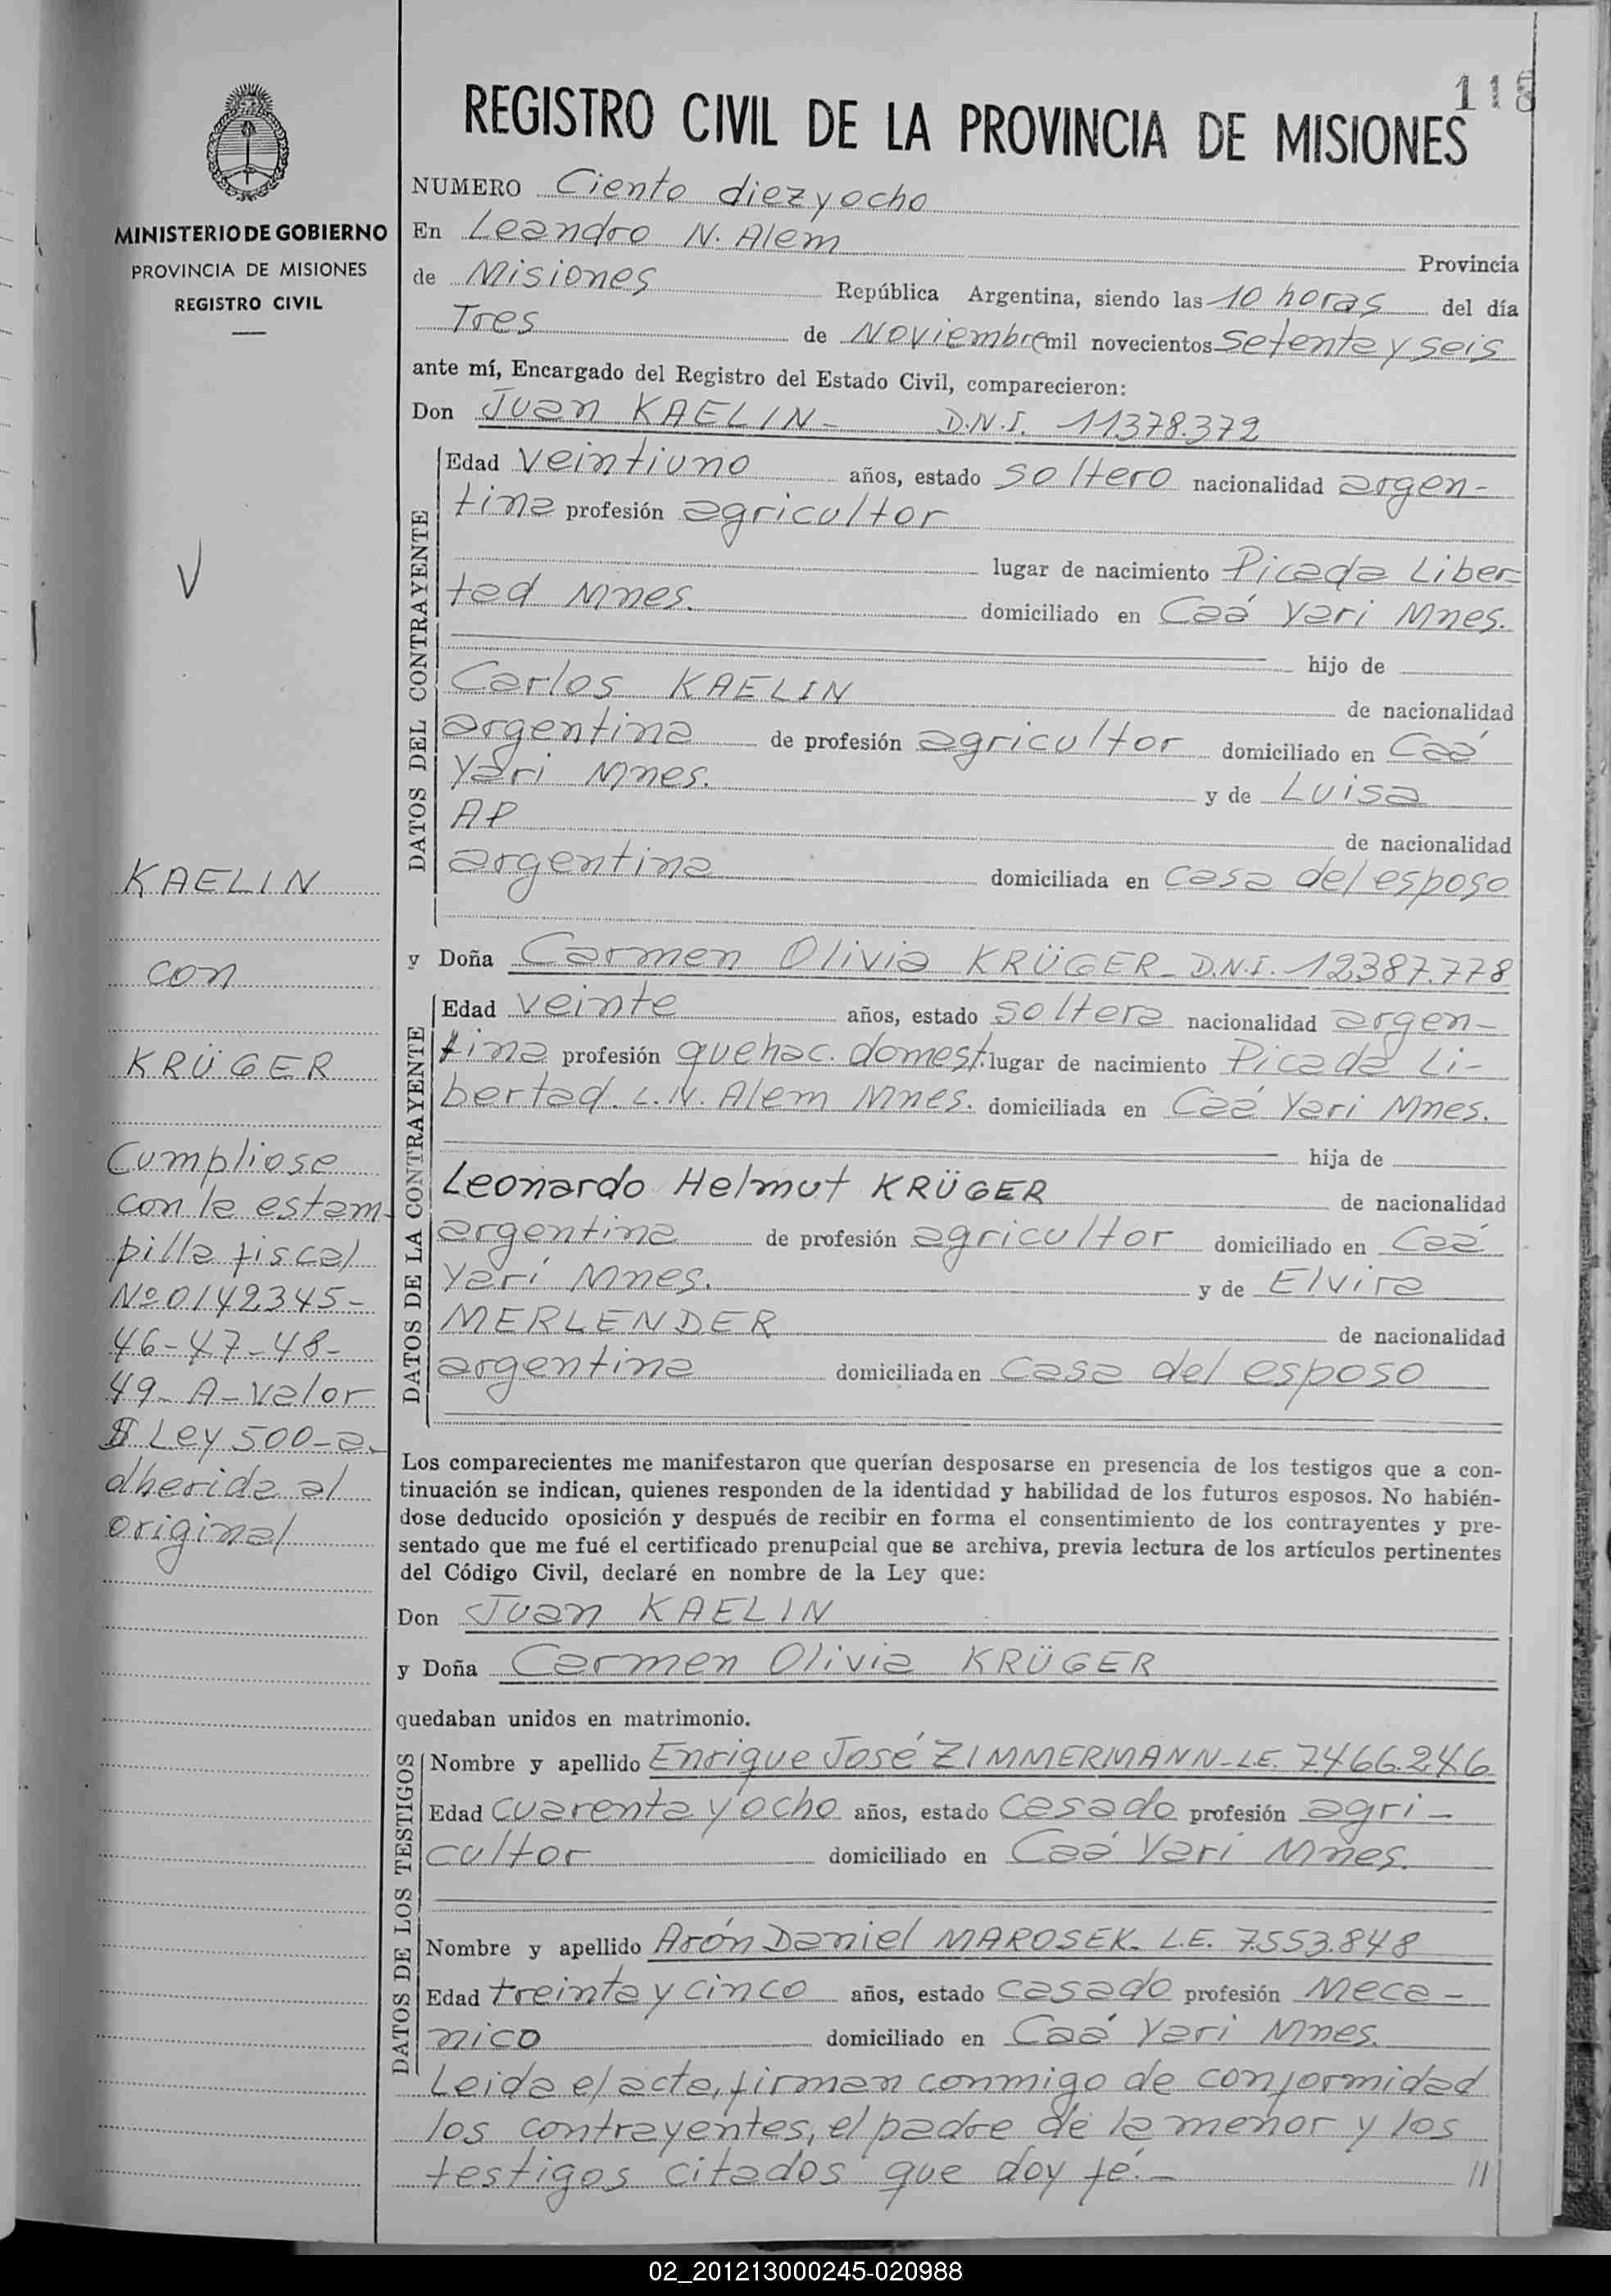 118
REGISTRO CIVIL DE LA PROVINCIA DE MISIONES
MINISTERIO DE GOBIERNO
PROVINCIA DE MISIONES
REGISTRO CIVIL
NUMERO Ciento diez y ocho
En Leandro N. Alem Provincia
de Misiones República Argentina, siendo las 10 horas del día
Tres de Noviembre mil novecientos Setenta y seis
ante mí, Encargado del Registro del Estado Civil, comparecieron:
Don Juan KAELIN - D.N.I. 11.378.372
DATOS DEL CONTRAYENTE
Edad Veintiuno años, estado soltero nacionalidad argen-
tina profesión agricultor
lugar de nacimiento Picada Liber-
tad Mnes. domiciliado en Caá Yari Mnes.
hijo de
Carlos KAELIN de nacionalidad
argentina de profesión agricultor domiciliado en Caá
Yari Mnes. y de Luisa
AP de nacionalidad
argentina domiciliada en casa del esposo
y Doña Carmen Olivia KRÜGER - D.N.I. 12.387.778
DATOS DE LA CONTRAYENTE
Edad Veinte años, estado soltera nacionalidad argen-
tina profesión quehac. domest. lugar de nacimiento Picada Li-
bertad. L.N. Alem Mnes. domiciliada en Caá Yari Mnes.
hija de
Leonardo Helmut KRÜGER de nacionalidad
argentina de profesión agricultor domiciliado en Caá
Yarí Mnes. y de Elvira
MERLENDER de nacionalidad
argentina domiciliada en casa del esposo
Los comparecientes me manifestaron que querían desposarse en presencia de los testigos que a con-
tinuación se indican, quienes responden de la identidad y habilidad de los futuros esposos. No habién-
dose deducido oposición y después de recibir en forma el consentimiento de los contrayentes y pre-
sentado que me fué el certificado prenupcial que se archiva, previa lectura de los artículos pertinentes
del Código Civil, declaré en nombre de la Ley que:
Don Juan KAELIN
y Doña Carmen Olivia KRÜGER
quedaban unidos en matrimonio.
DATOS DE LOS TESTIGOS
Nombre y apellido Enrique José ZIMMERMANN - L.E. 7.466.246
Edad cuarenta y ocho años, estado casado profesión agri-
cultor domiciliado en Caá Yari Mnes.
Nombre y apellido Arón Daniel MAROSEK. L.E. 7.553.848
Edad treinta y cinco años, estado casado profesión Meca-
nico domiciliado en Caá Yari Mnes.
Leida el acta, firman conmigo de conformidad
los contrayentes, el padre de la menor y los
testigos citados que doy fé. - //
KAELIN
con
KRÜGER
Cumpliose
con la estam-
pilla fiscal
Nº 0142345-
46-47-48-
49-A-Valor
$ Ley 500-a-
dherida al
original
02_201213000245-020988